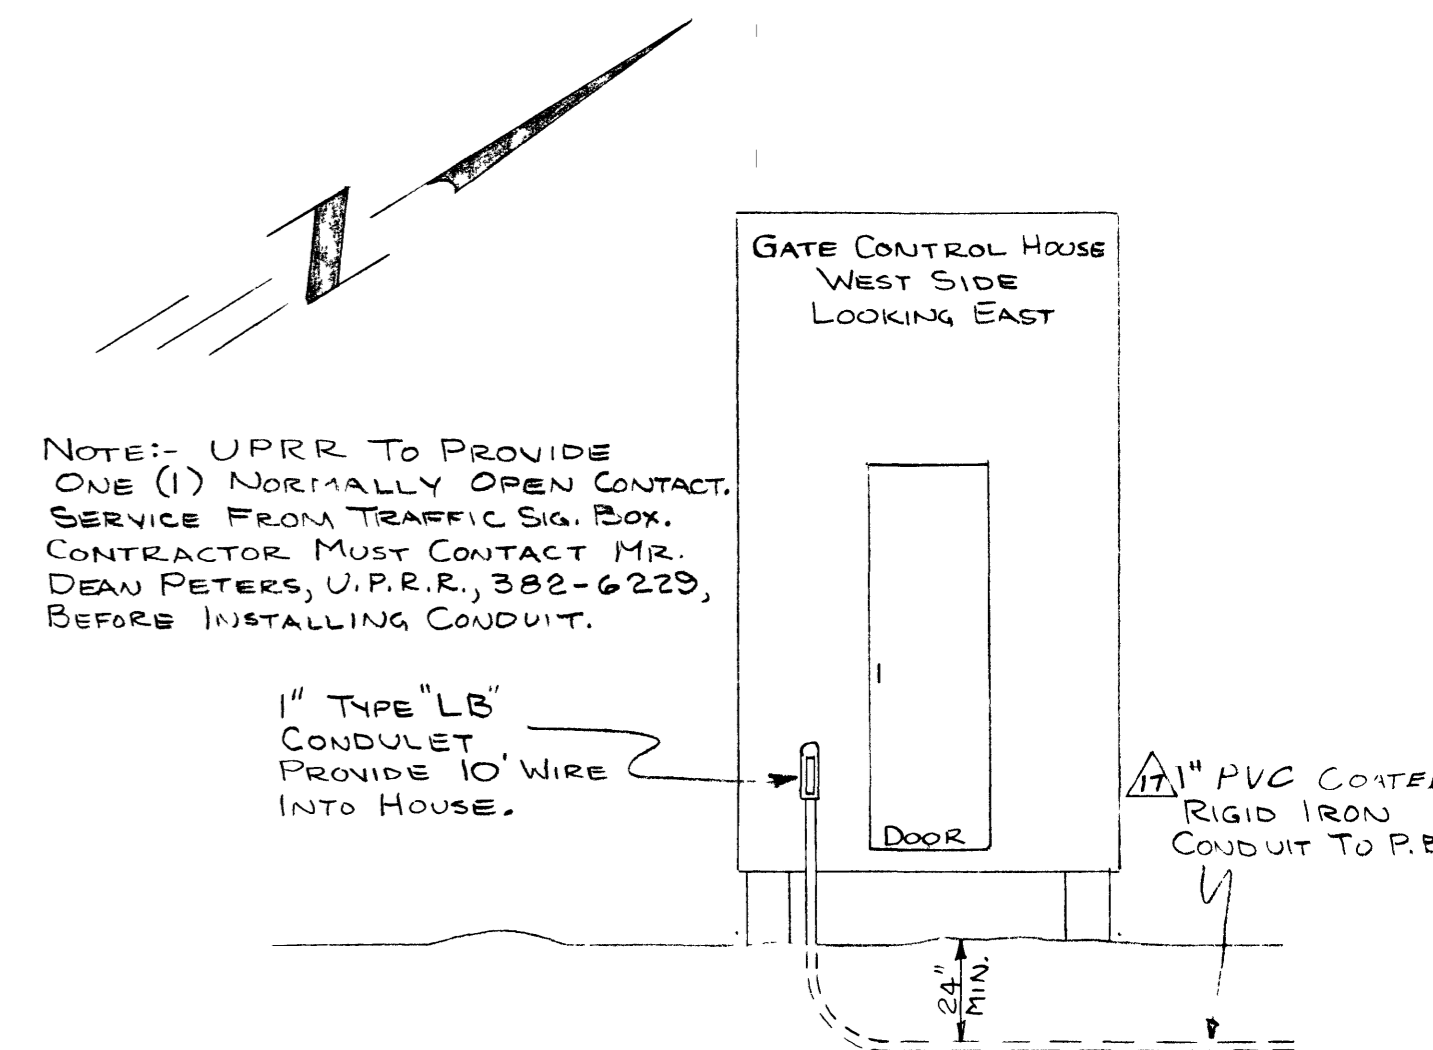 GATE CONTROL HOUSE
WEST SIDE
LOOKING EAST
NOTE:- UPRR TO PROVIDE
ONE (1) NORMALLY OPEN CONTACT.
SERVICE FROM TRAFFIC SIG. BOX.
CONTRACTOR MUST CONTACT MR.
DEAN PETERS, U.P.R.R., 382-6229,
BEFORE INSTALLING CONDUIT.
1" TYPE "LB"
CONDULET
PROVIDE 10' WIRE
INTO HOUSE.
DOOR
17 1" PVC COATE
RIGID IRON
CONDUIT TO P.
24"
MIN.